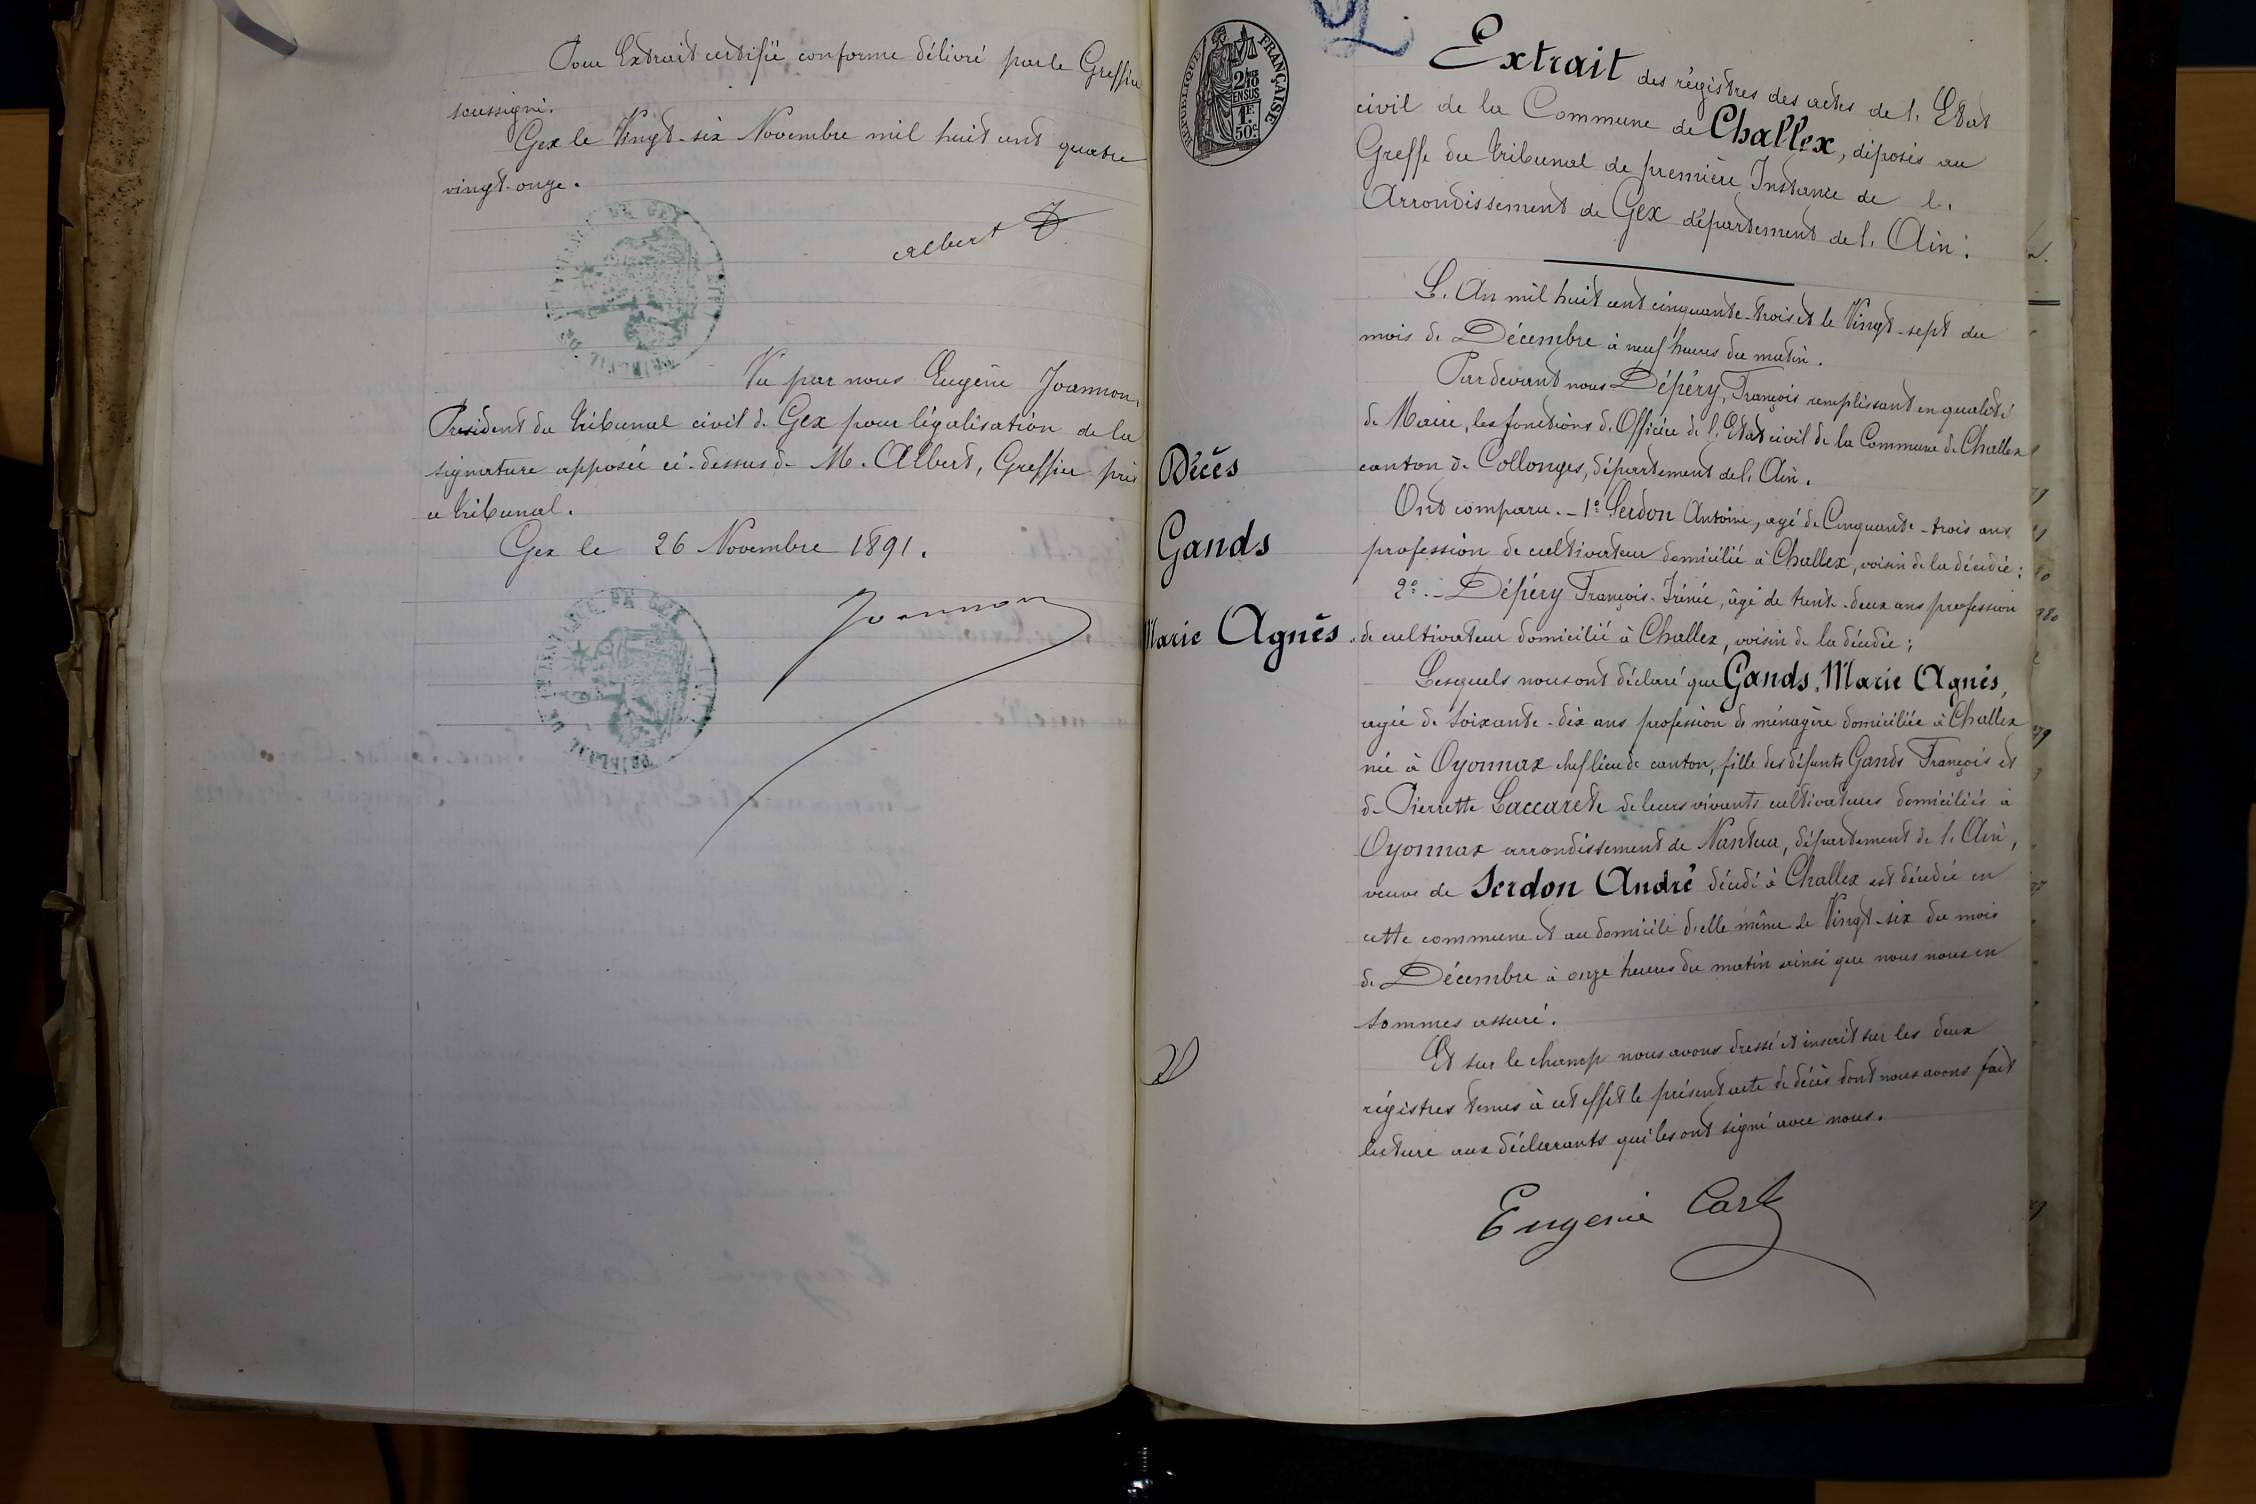 Pour Extrait certifié conforme délivré par le Greffier
soussigné.
Gex le Vingt-six Novembre mil huit cent quatre
vingt-onze.
Albert
Vu par nous Eugène Joannon,
Président du tribunal civil de Gex pour légalisation de la
signature apposée ci-dessus de M. Albert, Greffier près
ce tribunal.
Gex le 26 Novembre 1891.
Joannon
RÉPUBLIQUE FRANÇAISE
2/10
EN SUS
1F.
50c
Extrait des régistres des actes de l'Etat
civil de la Commune de Challex, déposés au
Greffe du tribunal de première Instance de l'
Arrondissement de Gex département de l'Ain.
L'An mil huit cent cinquante-trois et le Vingt-sept du
mois de Décembre à neuf heures du matin.
Pardevant nous Dépéry, François remplissant en qualité
de Maire, les fonctions d'Officier de l'Etat civil de la Commune de Challex
canton de Collonges, département de l'Ain.
Ont comparu. - 1º Serdon Antoine, agé de Cinquante-trois ans
profession de cultivateur domicilié à Challex, voisin de la décédée;
2º - Dépéry François-Irénée, âgé de trente-deux ans profession
de cultivateur domicilié à Challex, voisin de la décédée;
Lesquels nous ont déclaré que Gands, Marie Agnès,
agée de soixante-dix ans profession de ménagère domiciliée à Challex
née à Oyonnax chef lieu de canton, fille des défunts Gands François et
de Pierrette Laccarete de leurs vivants cultivateurs domiciliés à
Oyonnax arrondissement de Nantua, département de l'Ain,
veuve de Serdon André décédé à Challex est décédée en
cette commune et au domicile d'elle même le Vingt-six du mois
de Décembre à onze heures du matin ainsi que nous nous en
sommes assuré.
Et sur le champ nous avons dressé et inscrit sur les deux
régistres tenus à cet effet le présent acte de décès dont nous avons fait
lecture aux déclarants qui les ont signé avec nous.
Eugenie
Décès
Gands
Marie Agnès